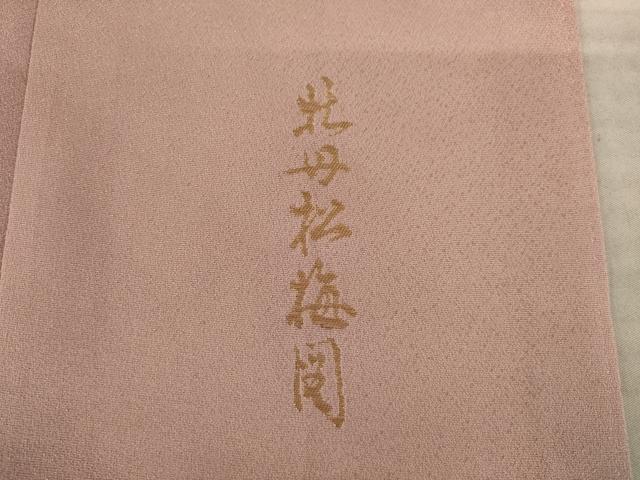 牡丹松梅